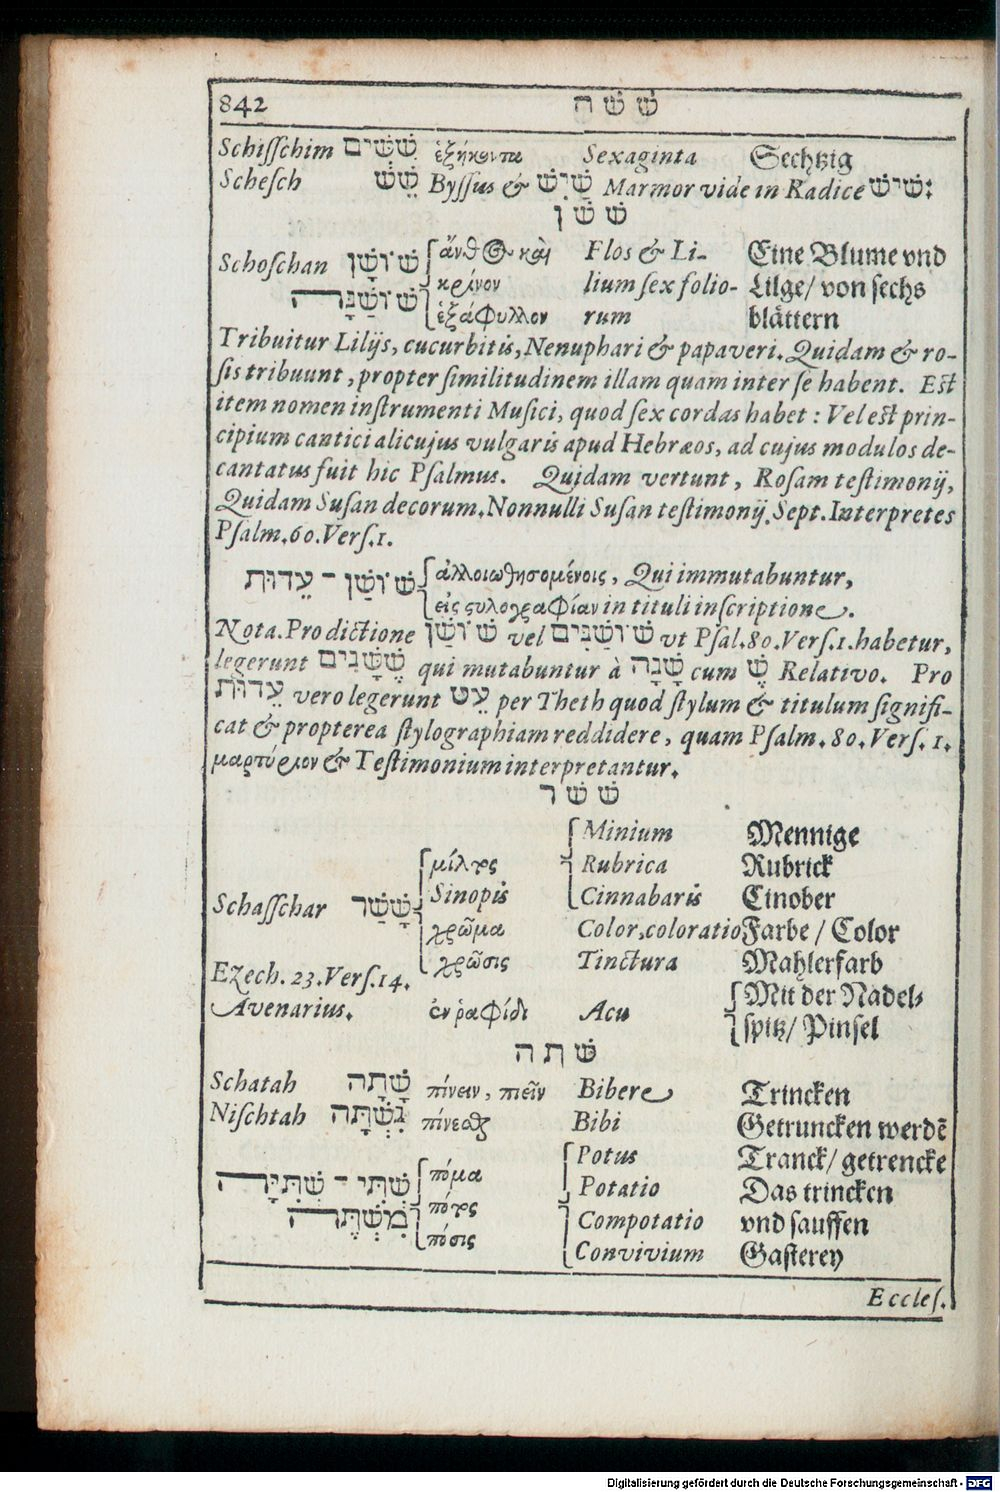 842 ש ש ה
Schiſſchim שִׁשִּׁים ἑξήκοντα Sexaginta Sechtzig
Scheſch שֵׁשׁ Byſſus & שַׁיִשׁ Marmor vide in Radice שׁישׁ:
שׁ שׁ ן
Schoſchan שׁוֹשָׁן ἄνθος καὶ Flos & Li- Eine Blume vnd
שׁוֹשַׁנָּה κρίνον lium ſex folio- Lilge/ von ſechs
ἑξάφυλλον rum blättern
Tribuitur Lilijs, cucurbitis, Nenuphari & papaveri. Quidam & ro-
ſis tribuunt, propter ſimilitudinem illam quam inter ſe habent. Eſt
item nomen inſtrumenti Muſici, quod ſex cordas habet: Vel eſt prin-
cipium cantici alicujus vulgaris apud Hebræos, ad cujus modulos de-
cantatus fuit hic Pſalmus. Quidam vertunt, Roſam teſtimonij,
Quidam Suſan decorum. Nonnulli Suſan teſtimonij. Sept. Interpretes
Pſalm. 60. Verſ. 1.
שׁוֹשַׁן - עֵדוּת ἀλλοιωθησομένοις, Qui immutabuntur,
εἰς ςυλογραφίαν in tituli inſcriptione.
Nota. Pro dictione שׁוֹשַׁן vel שׁוֹשַׁנִּים vt Pſal. 80. Verſ. 1. habetur,
legerunt שֶׁשָּׁנִים qui mutabuntur à שָׁנָה cum שֶׁ Relativo. Pro
עֵדוּת vero legerunt עֵט per Theth quod ſtylum & titulum ſignifi-
cat & propterea ſtylographiam reddidere, quam Pſalm. 80. Verſ. 1.
μαρτύριον & Teſtimonium interpretantur.
שׁ שׁ ר
Minium Mennige
μίλτος Rubrica Rubrick
Schaſſchar שָׁשַׁר Sinopis Cinnabaris Cinober
χρῶμα Color, coloratio Farbe / Color
χρῶσις Tinctura Mahlerfarb
Ezech. 23. Verſ. 14.
Avenarius. ἐν ῥαφίδι Acu Mit der Nadel-
ſpitz/ Pinſel
שׁ ת ה
Schatah שָׁתָה πίνειν, πιεῖν Bibere Trincken
Niſchtah נִשְׁתָּה πίνεσθαι Bibi Getruncken werdē
Potus Tranck/ getrencke
שְׁתִי - שְׁתִיָּה πόμα Potatio Das trincken
מִשְׁתֶּה πότος Compotatio vnd ſauffen
πόσις Convivium Gaſterey
Eccleſ.
Digitalisierung gefördert durch die Deutsche Forschungsgemeinschaft - DFG